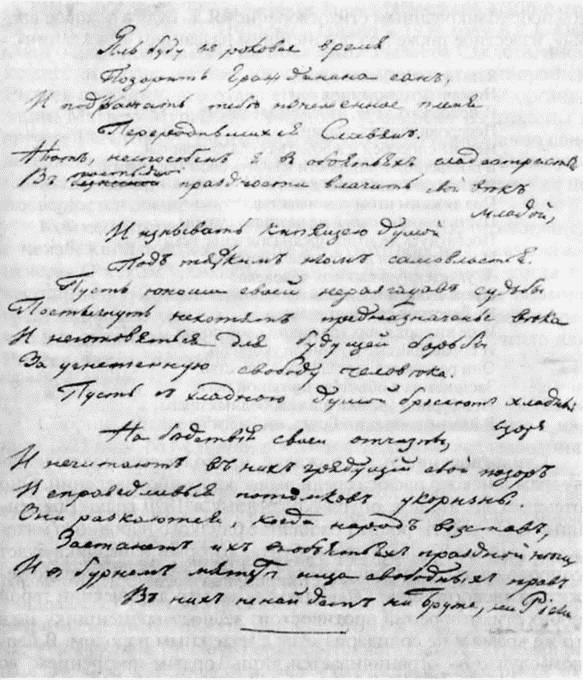 Яль буду въ роковое время
Позорить Гражданина санъ,
И подражать тебѣ изнеженное племя
Переродившихся Славянъ.
Нѣтъ, неспособенъ я въ объятьяхъ сладострастья
Въ постыдной праздности влачить свой вѣкъ
младой,
И изнывать кипящею душой
Подъ тяжкимъ игомъ самовластья.
Пусть юноши своей неразгадавъ судьбы
Постигнуть нехотятъ предназначенье вѣка
И неготовятся для будущей борьбы
За угнетенную свободу человѣка.
Пусть съ хладною душой бросаютъ хладный
взоръ
На бѣдствія своей отчизны,
И нечитаютъ въ нихъ грядущій свой позоръ
И справедливыя потомковъ укоризны.
Они раскаются, когда народъ возставъ,
Застанетъ ихъ въ объятьяхъ праздной нѣги
И въ бурномъ мятежѣ ища свободныхъ правъ
Въ нихъ ненайдетъ ни Брута, ни Ріеги